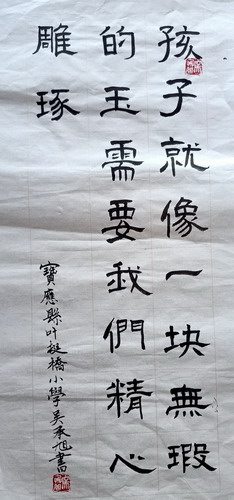 孩子就像一块無瑕
的玉需要我們精心
雕琢
寶應縣叶挺橋小學吴承旭書